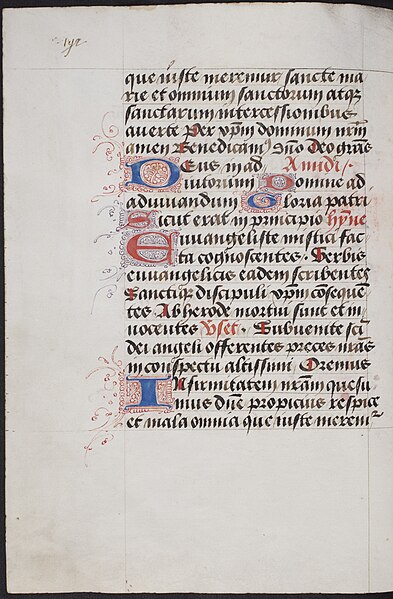 que iuste meremur sancte ma
rie et omnium sanctorum atq3
sanctarum intercessionibus
auerte Per xp̄m dominum nr̄m
amen Benedicam9 dn̄o Deo grās
Deus in ad A midi
iutorium Domine ad
adiuuandum Gloria patri
Sicut erat in principio hȳne
Euuangeliste mistici fac
ta cognoscentes. Verbis
euuangelicis eadem scribentes
Sanctiq3 discipuli xp̄m cōseque
tes Ab herode mortui sunt et in
nocentes vset. Subuenite sc̄i
dei angeli offerentes preces nr̄as
in conspectu altissimi Oremus
Infirmitatem nr̄am quesu
mus dn̄e propicius respice
et mala omnia que iuste merem2